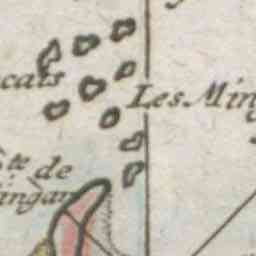 cais
Les Ming
te de
ingan